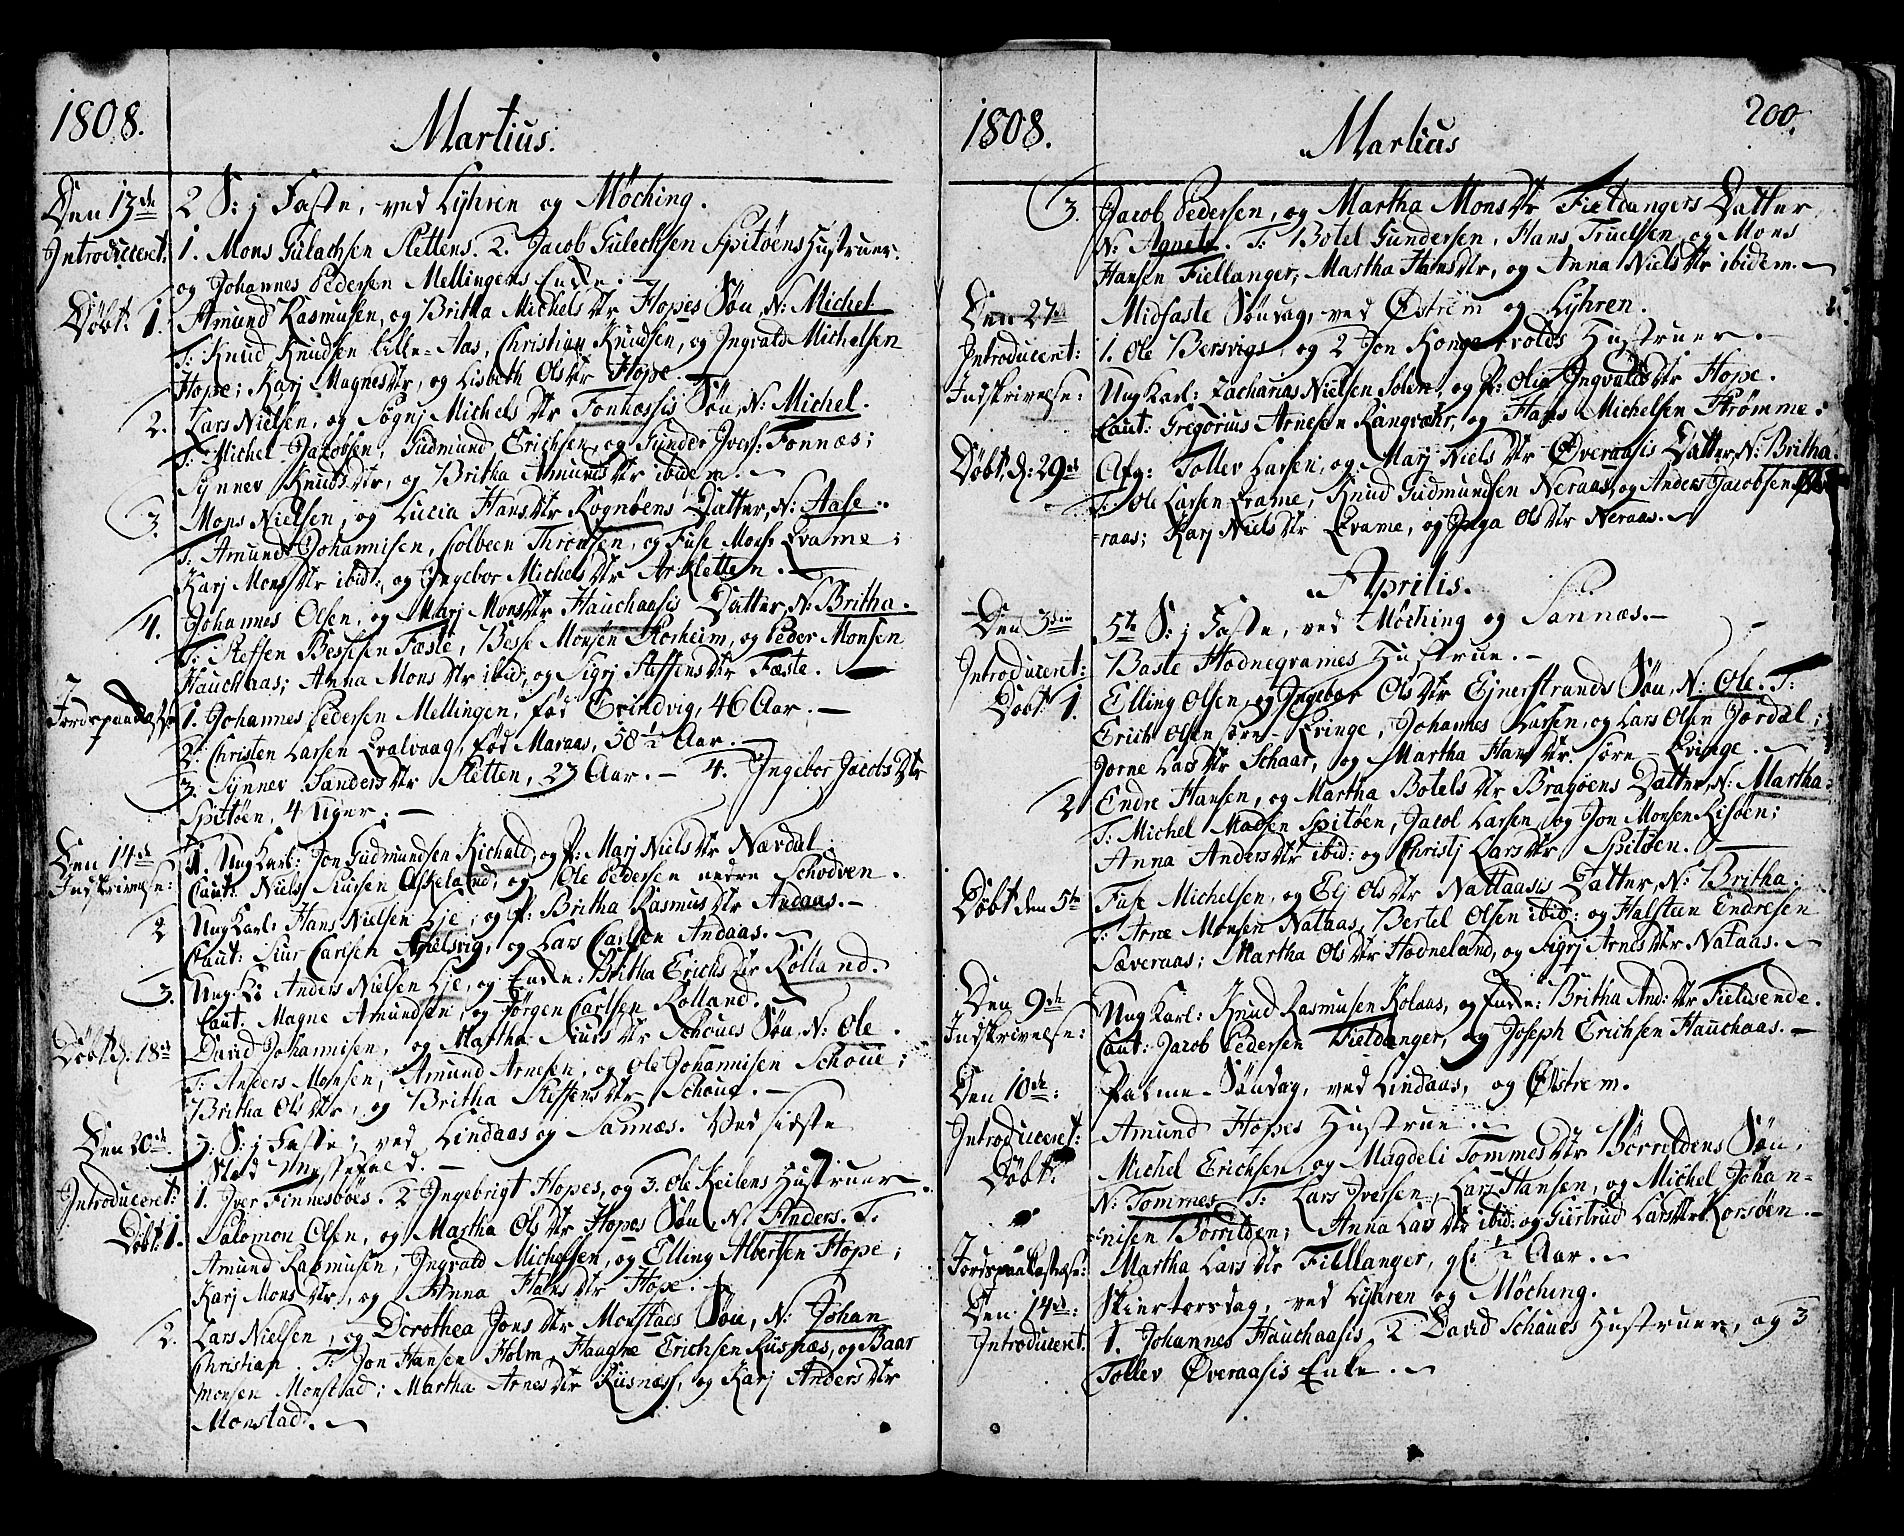 1808.
Martius.
Den 13de 2 S: j Faste, ved Lyhren og Möching.
Introduceret: 1. Mons Gulachsen Slettens. 2. Jacob Gulechsen Spitöens Hustruer.
og Johannes Pedersen Mellingens Encke.
Döbt: 1. Amund Rasmusen, og Britha Michels Dtr Hopes Sön, N: Michel
T: Knud Knudsen Lille-Aas, Christian Knudsen, og Ingvald Michelsen
Hope; Karj Magnes Dtr, og Lisbeth Ols Dtr Hope.
2. Lars Nielsen, og Sögnj Michels Dtr Fonnæssis Sön, N: Michel.
T: Michel Jacobsen, Gudmund Erichsen, og Gunder Jvers: Fonnæs;
Synnev Knuds Dtr, og Britha Amunds Dtr ibidem.
3. Mons Nielsen, og Lucia Hans Dtr Rognöens Datter, N: Aase.
T: Amund Johannisen, Colbeen Thronsen, og Fuse Mons: Qvame;
Karj Mons Dtr ibid: og Ingebor Michels Dtr Arsletten.
4. Johannes Olsen, og Marj Mons Dtr Hauchaasis Datter, N: Britha.
T: Steffen Bessesen Fæste, Besse Monsen Storheim, og Peder Monsen
Hauchaas; Anna Mons Dtr ibid, og Sigrj Steffens Dtr Fæste.
Jordspaakastelse 1. Johannes Pedersen Mellingen, föd Evindvig, 46 Aar.
2. Christen Larsen Qvalvaag, föd Maraas, 58 1/2 Aar.
3. Synnev Sanders Dtr Sletten, 23 Aar. - 4. Ingebor Jacobs Dtr
Spitöen, 4 Uger.
Den 14de 1. Ung Karl: Jon Gudmundsen Kichald, og P: Marj Niels Dtr Nævdal.
Indskrivelse: Caut: Niels Siursen Askeland, og Ole Pedersen nedre Schodven.
2 Ung Karl: Hans Nielsen Lje, og P: Britha Rasmus Dtr Andaas.
Caut: Siur Carlsen Askelsvig, og Lars Carlsen Andaas.
3. Ung: K: Anders Nielsen Lje, og Encke: Britha Erichs Dtr Rolland.
Caut: Magne Amundsen, og Jörgen Carlsen Rolland.
Döbt d. 18de David Johannisen, og Martha Siurs Dtr Schoues Sön, N: Ole.
T: Anders Monsen, Amund Arnesen, og Ole Johannisen Schoue;
Britha Ols Dtr, og Britha Steffens Dtr Schoue.
Den 20de 3. S: j Faste, ved Lindaas og Sannæs. Ved sidste
Sted Messefald.
Introduceret: 1. Jver Finnesböes. 2 Ingebrigt Hopes, og 3. Ole Keilens Hustruer.
Döbt: 1. Salomon Olsen, og Martha Ols Dtr Hopes Sön, N: Anders. T:
Amund Rasmusen, Ingvald Michelsen, og Elling Albertsen Hope;
Karj Mons Dtr, og Anna Hans Dtr Hope.
2. Lars Nielsen, og Dorothea Jons Dtr Monstads Sön, N: Johan
Christian. T: Jon Hansen Holm, Haagne Erichsen Risnæs, og Baar
Monsen Monstad; Martha Arnes Dtr Risnæss, og Karj Anders Dtr
Monstad.
1808.
Martius
200.
3. Jacob Pedersen, og Martha Mons Dtr Fieldangers Datter,
N: Agnete. T: Botel Gundersen, Hans Truelsen, og Mons
Hansen Fiellanger, Martha Hans Dtr, og Anna Niels Dtr ibidem.
Den 27de Midfaste Söndag, ved Östrem og Lyhren.
Introduceret: 1. Ole Bersvigs, og 2 Jon Kongsvolds Hustruer.
Indskrivelse: Ung Karl: Zacharias Nielsen Solem, og P: Olia Ingvalds Dtr Hope.
Caut: Gregorius Arnesen Rangvær, og Hans Michelsen Strömme.
Döbt d: 29de Afg: Tollev Larsen, og Marj Niels Dtr Överaasis Datter, N: Britha.
T: Ole Larsen Qvame, Knud Gudmundsen Neraas, og Anders Jacobsen
=raas; Karj Niels Dtr Qvame, og Inga Ols Dtr Neraas.
Aprilis.
Den 3die 5te S: j Faste, ved Möching og Sannæs.
Introduceret: Baste Hodnegrames Hustrue.
Döbt 1. Elling Olsen, og Ingebor Ols Dtr Ejnerstrands Sön, N: Ole. T:
Erich Olsen söre Qvinge, Johannes Larsen, og Lars Olsen Jordal;
Jorne Lars Dtr Schaar, og Martha Hans Dtr söre Qvinge.
2 Endre Hansen, og Martha Botels Dtr Bragöens Datter, N: Martha.
T: Michel Madsen Spitöen, Jacob Larsen, og Jon Monsen Risöen;
Anna Anders Dtr ibid: og Christj Lars Dtr Spitöen.
Döbt den 5te Fuse Michelsen, og Elj Ols Dtr Nattaasis Datter, N: Britha;
T: Arne Monsen Nataas, Bertel Olsen ibid: og Halsteen Endresen
Sæveraas; Martha Ols Dtr Hodneland, og Sigrj Arnes Dtr Nataas.
Den 9de Ung Karl: Knud Rasmusen Kolaas, og Encke: Britha And: Dtr Fieldsende.
Indskrivelse: Caut: Jacob Pedersen Fieldanger, og Joseph Erichsen Hauchaas.
Den 10de: Palme-Söndag, ved Lindaas, og Östrem.
Introduceret: Amund Hopes Hustrue.
Döbt: Michel Erichsen, og Magdeli Tommes Dtr Börrildens Sön,
N: Tommes. T: Lars Jversen, Lars Hansen, og Michel Johan-
nisen Börrilden; Anna Lars Dtr ibid: og Giertrud Lars Dtr Korsöen.
Jordspaakastelse: Martha Lars Dtr Fiellanger, gl: 1/2 Aar.
Den 14de: Skiertorsdag, ved Lyhren og Möching.
Introduceret. 1. Johannes Hauchaasis, 2 David Schoues Hustruer, og 3
Tollev Överaasis Enke.